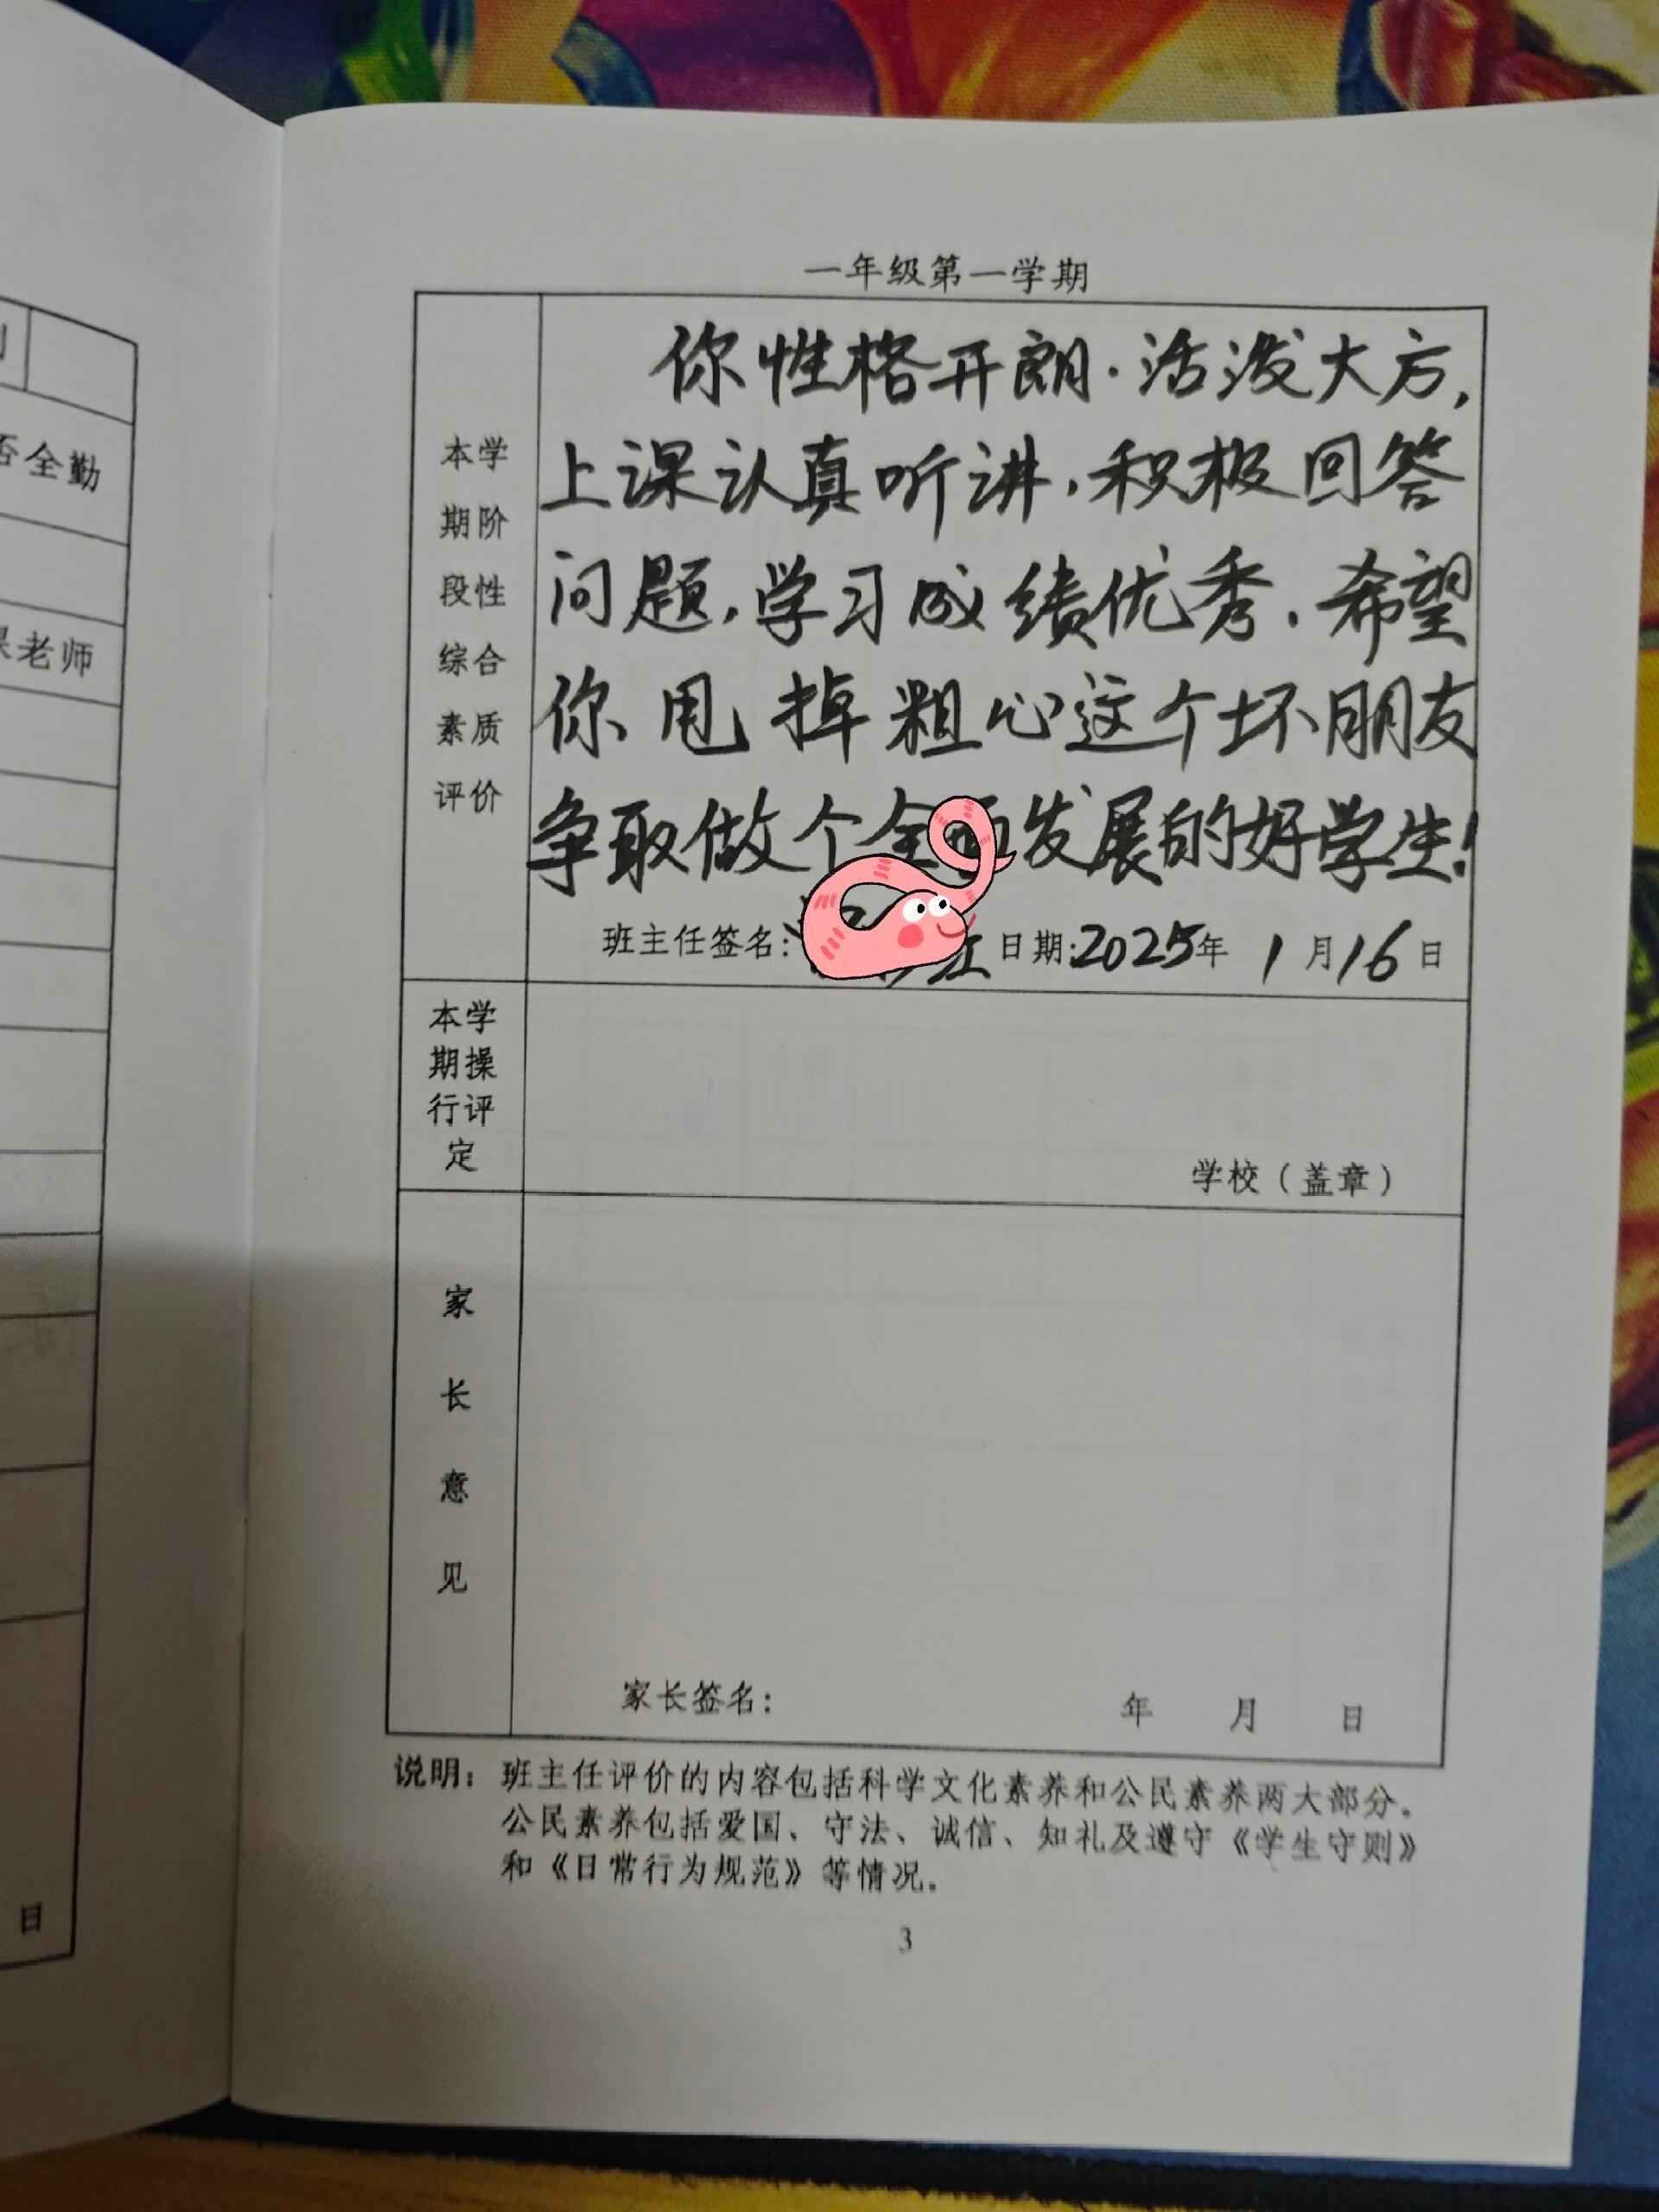 全勤
老师
日
一年级第一学期
本学
期阶
段性
综合
素质
评价
你性格开朗.活泼大方,
上课认真听讲,积极回答
问题,学习成绩优秀.希望
你甩掉粗心这个坏朋友
争取做个全面发展的好学生!
班主任签名: 日期:2025年1月16日
本学
期操
行评
定
学校(盖章)
家
长
意
见
家长签名: 年 月 日
说明:班主任评价的内容包括科学文化素养和公民素养两大部分。
公民素养包括爱国、守法、诚信、知礼及遵守《学生守则》
和《日常行为规范》等情况。
3